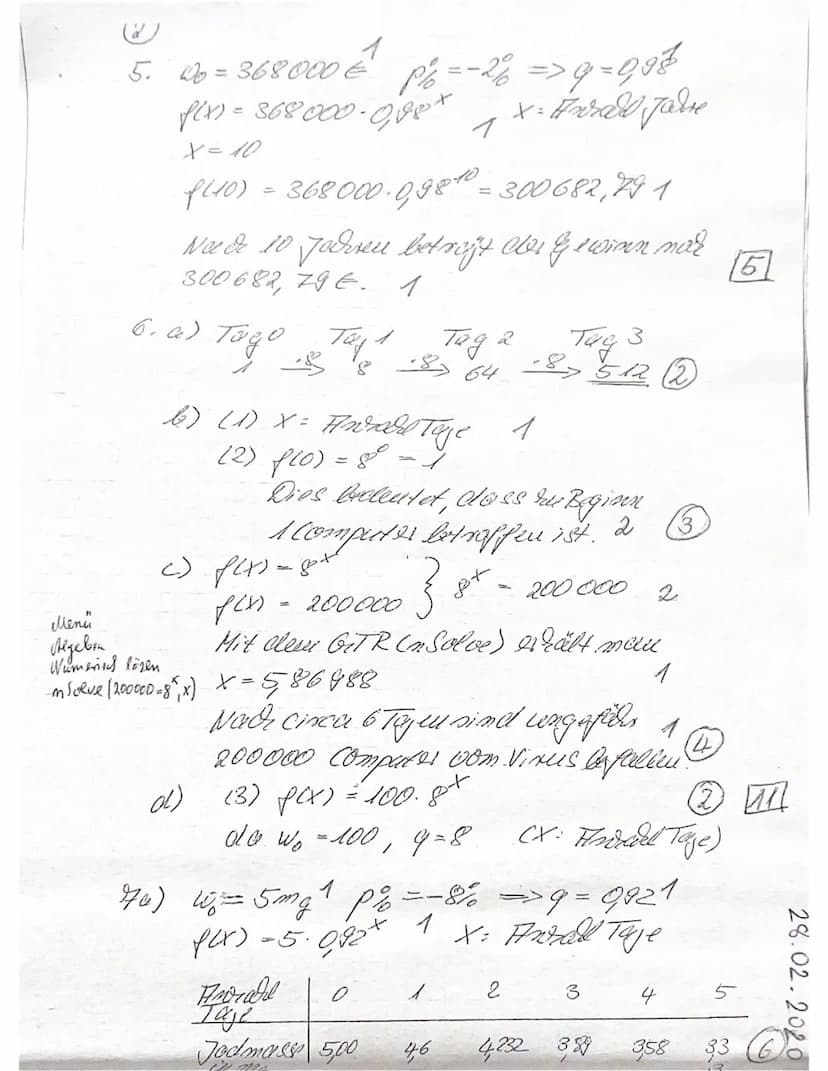 (2)
5. W₀ = 368000 € 1 p% = -2% => q = 0,98 1
f(x) = 368000 · 0,98^x 1 x = Anzahl Jahre
x = 10
f(10) = 368000 · 0,98^10 = 300682,79 1
Nach 10 Jahren beträgt der Gewinn nur
300682,79 €. 1 5
6. a) Tag 0 Tag 1 Tag 2 Tag 3
1 ·8→ 8 ·8→ 64 ·8→ 512 2
b) (1) x = Anzahl Tage 1
(2) f(0) = 8^0 = 1
Dies bedeutet, dass zu Beginn
1 Computer betroffen ist. 2 3
c) f(x) = 8^x
f(x) = 200000 } 8^x = 200000 2
Menü
Algebra
Numerisch lösen
nSolve(200000=8^x,x)
Mit dem GTR (nSolve) erhält man
x = 5,86988 1
Nach circa 6 Tagen sind ungefähr 1
200000 Computer vom Virus befallen. 4
d) (3) f(x) = 100 · 8^x 2 11
da W₀ = 100, q = 8 (x: Anzahl Tage)
7a) W₀ = 5mg 1 p% = -8% => q = 0,92 1
f(x) = 5 · 0,92^x 1 x: Anzahl Tage
Anzahl Tage 0 1 2 3 4 5
Jodmasse 5,00 4,6 4,232 3,89 3,58 3,3 6
28.02.2020